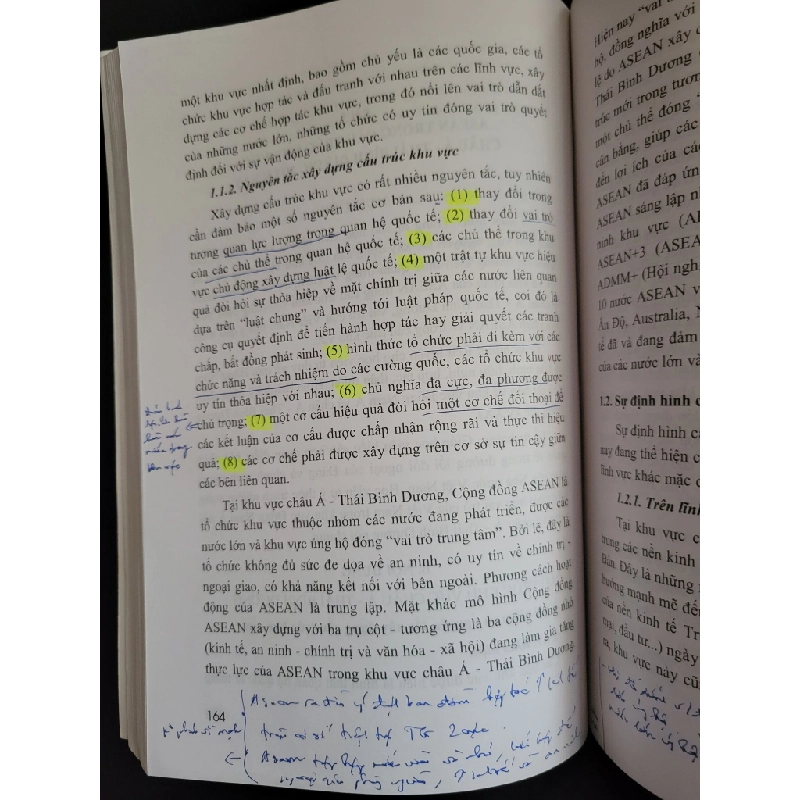 một khu vực nhất định, bao gồm chủ yếu là các quốc gia, các tổ
chức khu vực hợp tác và đấu tranh với nhau trên các lĩnh vực, xây
dựng các cơ chế hợp tác khu vực, trong đó nổi lên vai trò dẫn dắt
của những nước lớn, những tổ chức có uy tín đóng vai trò quyết
định đối với sự vận động của khu vực.
1.1.2. Nguyên tắc xây dựng cấu trúc khu vực
Xây dựng cấu trúc khu vực có rất nhiều nguyên tắc, tuy nhiên
cần đảm bảo một số nguyên tắc cơ bản sau: (1) thay đổi trong
tương quan lực lượng trong quan hệ quốc tế; (2) thay đổi vai trò
của các chủ thể trong quan hệ quốc tế; (3) các chủ thể trong khu
vực chủ động xây dựng luật lệ quốc tế; (4) một trật tự khu vực hiệu
quả đòi hỏi sự thỏa hiệp về mặt chính trị giữa các nước liên quan
dựa trên “luật chung” và hướng tới luật pháp quốc tế, coi đó là
công cụ quyết định để tiến hành hợp tác hay giải quyết các tranh
chấp, bất đồng phát sinh; (5) hình thức tổ chức phải đi kèm với các
chức năng và trách nhiệm do các cường quốc, các tổ chức khu vực
uy tín thỏa hiệp với nhau; (6) chủ nghĩa đa cực, đa phương được
chú trọng; (7) một cơ cấu hiệu quả đòi hỏi một cơ chế đối thoại để
các kết luận của cơ cấu được chấp nhận rộng rãi và thực thi hiệu
quả; (8) các cơ chế phải được xây dựng trên cơ sở sự tin cậy giữa
các bên liên quan.
Tại khu vực châu Á - Thái Bình Dương, Cộng đồng ASEAN là
tổ chức khu vực thuộc nhóm các nước đang phát triển, được các
nước lớn và khu vực ủng hộ đóng “vai trò trung tâm”. Bởi lẽ, đây là
tổ chức không đủ sức đe dọa về an ninh, có uy tín về chính trị -
ngoại giao, có khả năng kết nối với bên ngoài. Phương cách hoạt
động của ASEAN là trung lập. Mặt khác mô hình Cộng đồng
ASEAN xây dựng với ba trụ cột - tương ứng là ba cộng đồng nhỏ
(kinh tế, an ninh - chính trị và văn hóa - xã hội) đang làm gia tăng
thực lực của ASEAN trong khu vực châu Á - Thái Bình Dương.
164
Hiện nay “vai t
hộ, đồng nghĩa với
lệ do ASEAN xây d
Thái Bình Dương
trúc mới trong tươn
một chủ thể đóng
cân bằng, giúp các
đến lợi ích của cá
ASEAN đã đáp ứn
ASEAN sáng lập n
ninh khu vực (A
ASEAN+3 (ASEA
ADMM+ (Hội ngh
10 nước ASEAN v
Ấn Độ, Australia,
tế đã và đang đảm
của các nước lớn và
1.2. Sự định hình c
Sự định hình cấ
nay đang thể hiện c
lĩnh vực khác mặc d
1.2.1. Trên lĩn
Tại khu vực c
trung các nền kinh
Bản. Đây là những
hướng mạnh mẽ đế
của nền kinh tế Tr
mại, đầu tư...) ngày
ra, khu vực này cũ